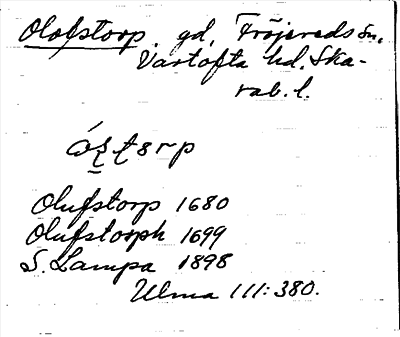 Olofstorp. gd, Fröjereds sn,
Vartofta hd. Ska-
rab. l.
Olufstorp 1680
Olufstorph 1699
S. Lampa 1898
Ulma 111: 380.